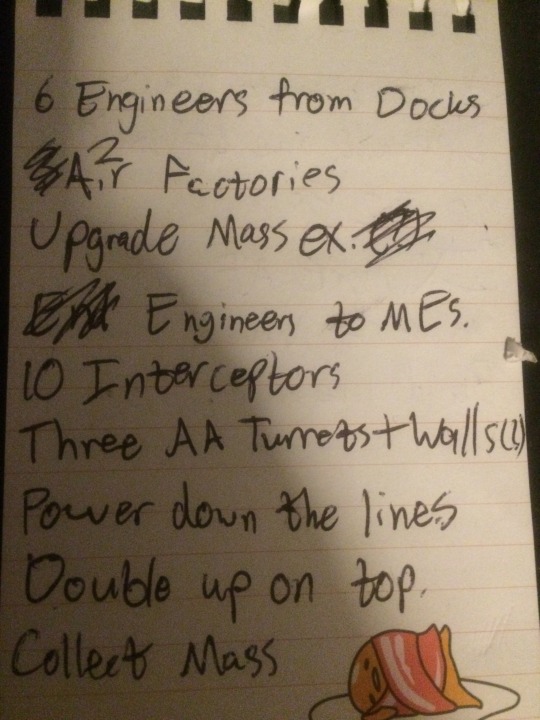 6 Engineers from Docks
2 Air Factories
Upgrade Mass ex.
Engineers to MEs.
10 Interceptors
Three AA Turrets + Walls
Power down the lines
Double up on top.
Collect Mass